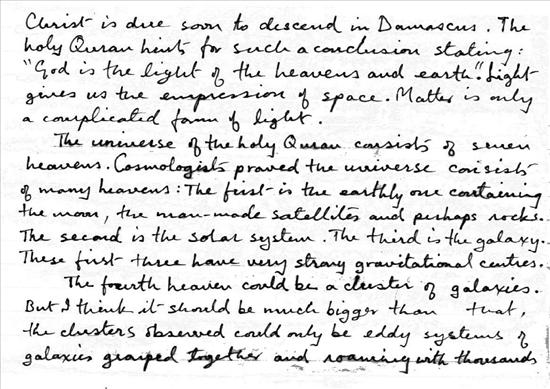 Christ is due soon to descend in Damascus. The
holy Quran hints for such a conclusion stating:
"God is the light of the heavens and earth". Light
gives us the empression of space. Matter is only
a complicated form of light.
The universe of the holy Quran consists of seven
heavens. Cosmologists proved the universe consists
of many heavens: The first is the earthly one containing
the moon, the man-made satellites and perhaps rocks.
The second is the solar system. The third is the galaxy.
These first three have very strong gravitational centres.
The fourth heaven could be a cluster of galaxies.
But I think it should be much bigger than that,
the clusters observed could only be eddy systems of
galaxies graiped together and roaming with thousands